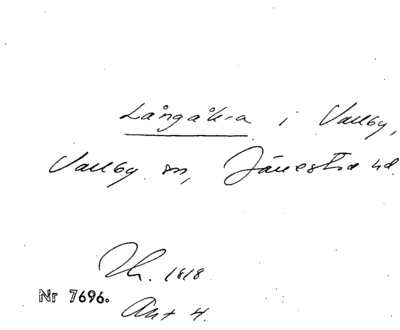 Långåkra i Valby,
Valby sn, Järrestad hd.
Th. 1818
Nr 7696.
Akt 4.